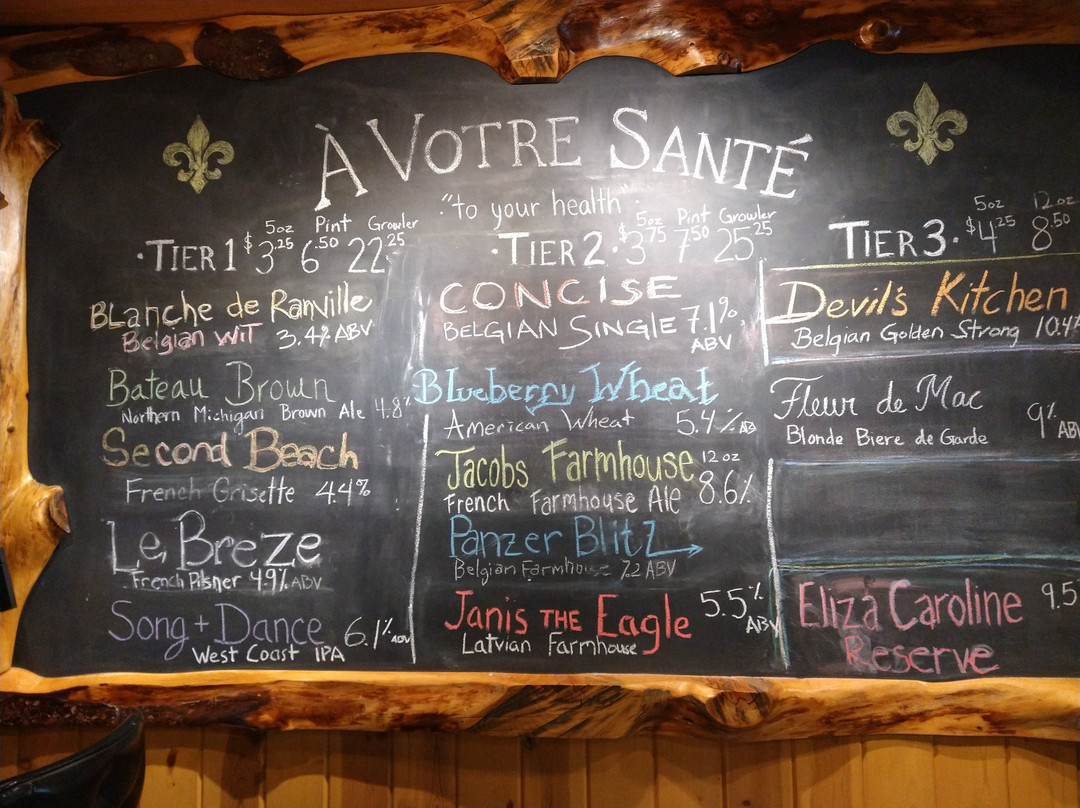 À VOTRE SANTÉ
"to your health"
5oz Pint Growler
·TIER 1 $3.25 6.50 22.25
BLanche de Ranville
Belgian WiT 3.4% ABV
Bateau Brown
Northern Michigan Brown Ale 4.8%
Second Beach
French Grisette 4.4%
Le Breze
French Pilsner 4.9% ABV
Song + Dance
West Coast IPA 6.1% ABV
5oz Pint Growler
·TIER 2· $3.75 7.50 25.25
CONCISE
BELGIAN SINGLE 7.1%
ABV
BLueberry Wheat
American Wheat 5.4% ABV
Jacobs Farmhouse 12 oz
French Farmhouse Ale 8.6%
Panzer Blitz
Belgian Farmhouse 7.2 ABV
Janis THE Eagle 5.5%
ABV
Latvian Farmhouse
5oz 12oz
TIER 3· $4.25 8.50
Devil's Kitchen
Belgian Golden Strong 10.4%
Fleur de Mac
Blonde Biere de Garde 9% ABV
Eliza Caroline 9.5
Reserve